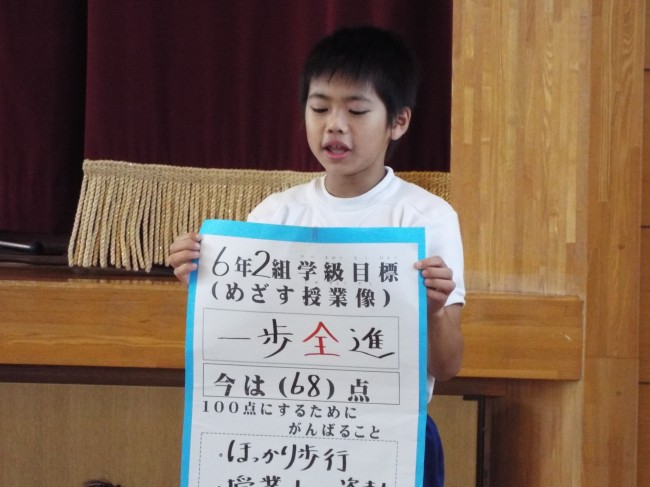 6年2組学級目標
(めざす授業像)
一歩全進
今は(68)点
100点にするために
がんばること
・ほっかり歩行